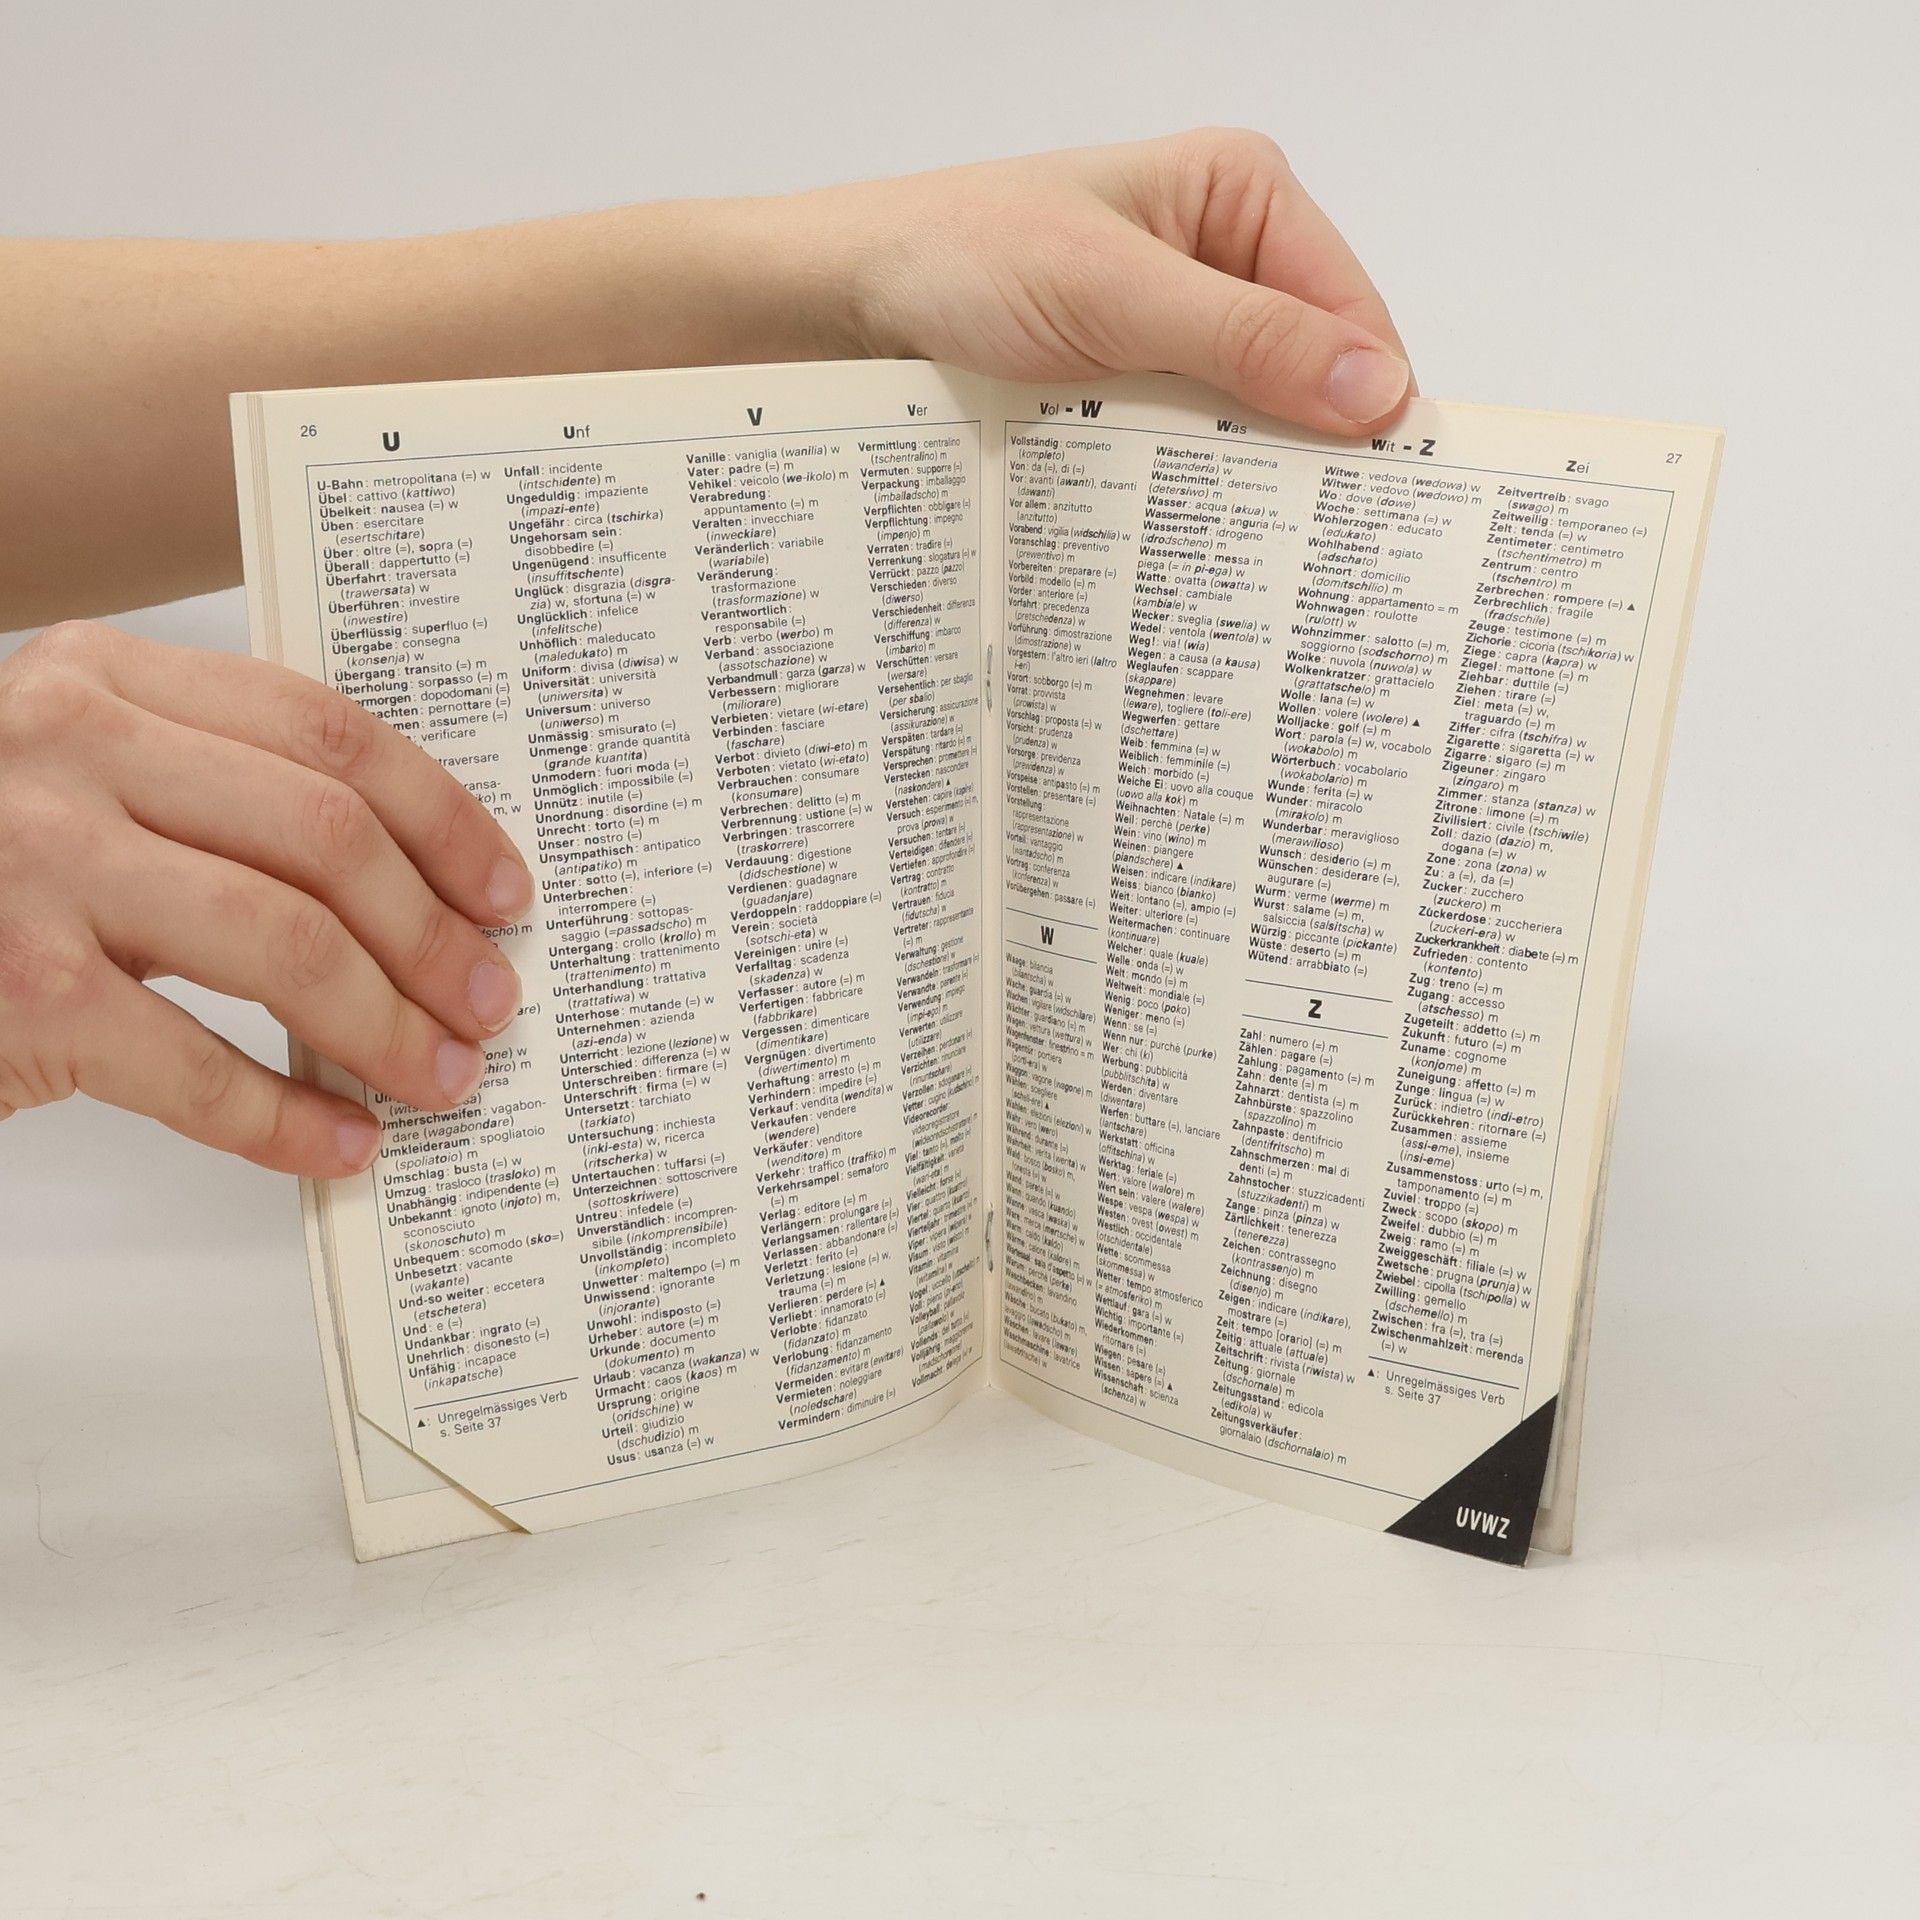 26
U
Unf
V
Ver
U-Bahn: metropolitana (=) w
Übel: cattivo (kattiwo)
Übelkeit: nausea (=) w
Üben: esercitare
(esertschitare)
Über: oltre (=), sopra (=)
Überall: dappertutto (=)
Überfahrt: traversata
(trawersata) w
Überführen: investire
(inwestire)
Überflüssig: superfluo (=)
Übergabe: consegna
(konsenja) w
Übergang: transito (=) m
Überholung: sorpasso (=) m
dopodomani (=)
pernottare (=)
assumere (=)
verificare
Umherschweifen: vagabon-
dare (wagabondare)
Umkleideraum: spogliatoio
(spoliatoio) m
Umschlag: busta (=) w
Umzug: trasloco (trasloko) m
Unabhängig: indipendente (=)
Unbekannt: ignoto (injoto) m,
sconosciuto
(skonoschuto) m
Unbequem: scomodo (sko=)
Unbesetzt: vacante
(wakante)
Und-so weiter: eccetera
(etschetera)
Und: e (=)
Undankbar: ingrato (=)
Unehrlich: disonesto (=)
Unfähig: incapace
(inkapatsche)
▲: Unregelmässiges Verb
s. Seite 37
Unfall: incidente
(intschidente) m
Ungeduldig: impaziente
(impazi-ente)
Ungefähr: circa (tschirka)
Ungehorsam sein:
disobbedire (=)
Ungenügend: insufficente
(insuffitschente)
Unglück: disgrazia (disgra-
zia) w, sfortuna (=) w
Unglücklich: infelice
(infelitsche)
Unhöflich: maleducato
(maledukato) m
Uniform: divisa (diwisa) w
Universität: università
(uniwersita) w
Universum: universo
(uniwerso) m
Unmässig: smisurato (=)
Unmenge: grande quantità
(grande kuantita)
Unmodern: fuori moda (=)
Unmöglich: impossibile (=)
Unnütz: inutile (=)
Unordnung: disordine (=) m
Unrecht: torto (=) m
Unser: nostro (=)
Unsympathisch: antipatico
(antipatiko) m
Unter: sotto (=), inferiore (=)
Unterbrechen:
interrompere (=)
Unterführung: sottopas-
saggio (=passadscho) m
Untergang: crollo (krollo) m
Unterhaltung: trattenimento
(trattenimento) m
Unterhandlung: trattativa
(trattatiwa) w
Unterhose: mutande (=) w
Unternehmen: azienda
(azi-enda) w
Unterricht: lezione (lezione) w
Unterschied: differenza (=) w
Unterschreiben: firmare (=)
Unterschrift: firma (=) w
Untersetzt: tarchiato
(tarkiato)
Untersuchung: inchiesta
(inki-esta) w, ricerca
(ritscherka) w
Untertauchen: tuffarsi (=)
Unterzeichnen: sottoscrivere
(sottoskriwere)
Untreu: infedele (=)
Unverständlich: incompren-
sibile (inkomprensibile)
Unvollständig: incompleto
(inkompleto)
Unwetter: maltempo (=) m
Unwissend: ignorante
(injorante)
Unwohl: indisposto (=)
Urheber: autore (=) m
Urkunde: documento
(dokumento) m
Urlaub: vacanza (wakanza) w
Urmacht: caos (kaos) m
Ursprung: origine
(oridschine) w
Urteil: giudizio
(dschudizio) m
Usus: usanza (=) w
Vanille: vaniglia (wanilia) w
Vater: padre (=) m
Vehikel: veicolo (we-ikolo) m
Verabredung:
appuntamento (=) m
Veralten: invecchiare
(inweckiare)
Veränderlich: variabile
(wariabile)
Veränderung:
trasformazione
(trasformazione) w
Verantwortlich:
responsabile (=)
Verb: verbo (werbo) m
Verband: associazione
(assotschazione) w
Verbandmull: garza (garza) w
Verbessern: migliorare
(miliorare)
Verbieten: vietare (wi-etare)
Verbinden: fasciare
(faschare)
Verbot: divieto (diwi-eto) m
Verboten: vietato (wi-etato)
Verbrauchen: consumare
(konsumare)
Verbrechen: delitto (=) m
Verbrennung: ustione (=) w
Verbringen: trascorrere
(traskorrere)
Verdauung: digestione
(didschestione) w
Verdienen: guadagnare
(guadanjare)
Verdoppeln: raddoppiare (=)
Verein: società
(sotschi-eta) w
Vereinigen: unire (=)
Verfalltag: scadenza
(skadenza) w
Verfasser: autore (=) m
Verfertigen: fabbricare
(fabbrikare)
Vergessen: dimenticare
(dimentikare)
Vergnügen: divertimento
(diwertimento) m
Verhaftung: arresto (=) m
Verhindern: impedire (=)
Verkauf: vendita (wendita) w
Verkaufen: vendere
(wendere)
Verkäufer: venditore
(wenditore) m
Verkehr: traffico (traffiko) m
Verkehrsampel: semaforo
(=) m
Verlag: editore (=) m
Verlängern: prolungare (=)
Verlangsamen: rallentare (=)
Verlassen: abbandonare (=)
Verletzt: ferito (=)
Verletzung: lesione (=) w,
trauma (=) m
Verlieren: perdere (=) ▲
Verliebt: innamorato (=)
Verlobte: fidanzato
(fidanzato) m
Verlobung: fidanzamento
(fidanzamento) m
Vermeiden: evitare (ewitare)
Vermieten: noleggiare
(noledschare)
Vermindern: diminuire (=)
Vermittlung: centralino
(tschentralino) m
Vermuten: supporre (=)
Verpackung: imballaggio
(imballadscho) m
Verpflichten: obbligare (=)
Verpflichtung: impegno
(impenjo) m
Verraten: tradire (=)
Verrenkung: slogatura (=) w
Verrückt: pazzo (pazzo)
Verschieden: diverso
(diwerso)
Verschiedenheit: differenza
(differenza) w
Verschiffung: imbarco
(imbarko) m
Verschütten: versare
(wersare)
Versehentlich: per sbaglio
(per sbalio)
Versicherung: assicurazione
(assikurazione) w
Verspäten: tardare (=)
Verspätung: ritardo (=) m
Versprechen: promettere (=)
Verstecken: nascondere
(naskondere) ▲
Verstehen: capire (kapire)
Versuch: esperimento (=) m,
prova (prowa) w
Versuchen: tentare (=)
Verteidigen: difendere (=)
Vertiefen: approfondire (=)
Vertrag: contratto
(kontratto) m
Vertrauen: fiducia
(fidutscha) w
Vertreter: rappresentante
(=) m
Verwaltung: gestione
(dschestione) w
Verwandeln: trasformare (=)
Verwandte: parente (=)
Verwendung: impiego
(impi-ego) m
Verwerten: utilizzare
(utilizzare)
Verzeihen: perdonare (=)
Verzichten: rinunciare
(rinuntschare)
Verzollen: sdoganare (=)
Vetter: cugino (kudschino) m
Videorecorder:
videoregistratore
Viel: tanto (=), molto (=)
Vielfältigkeit: varietà
(wari-eta) w
Vielleicht: forse (=)
Vitamin: vitamina
(witamina) w
Volleyball: pallavolo
27
Vol - W
Was
Wit - Z
Zei
Vollständig: completo
(kompleto)
Von: da (=), di (=)
Vor: avanti (awanti), davanti
(dawanti)
Vor allem: anzitutto
(anzitutto)
Vorabend: vigilia (widschilia) w
Voranschlag: preventivo
(prewentivo) m
Vorbereiten: preparare (=)
Vorbild: modello (=) m
Vorder: anteriore (=)
Vorfahrt: precedenza
(pretschedenza) w
Vorführung: dimostrazione
(dimostrazione) w
Vorgestern: l'altro ieri (laltro
i-eri)
Vorort: sobborgo (=) m
Vorrat: provvista
(prowista) w
Vorschlag: proposta (=) w
Vorsicht: prudenza
(prudenza) w
Vorsorge: previdenza
(prewidenza) w
Vorspeise: antipasto (=) m
Vorstellen: presentare (=)
Vorstellung:
rappresentazione
(rappresentazione) w
Vorteil: vantaggio
(wantadscho) m
Vortrag: conferenza
(konferenza) w
Vorübergehen: passare (=)
W
Waage: bilancia
(bilantscha) w
Wache: guardia (=) w
Wachen: vigilare (widschilare)
Wächter: guardiano (=) m
Wagen: vettura (wettura) w
Wagenfenster: finestrino = m
Wagentür: portiera
(porti-era) w
Waggon: vagone (wagone) m
Wählen: scegliere
(scheli-ere) ▲
Wahlen: elezioni (elezioni) w
Wahr: vero (wero)
Während: durante (=)
Wahrheit: verità (werita) w
Wald: bosco (bosko) m,
foresta (=) w
Wand: parete (=) w
Wann: quando (kuando)
Wanne: vasca (waska) w
Ware: merce (mertsche) w
Warm: caldo (kaldo)
Wärme: calore (kalore) m
Warum: perchè (perke)
Waschbecken: lavandino
(lawandino) m
Wäsche: bucato (bukato) m,
lavaggio (lawadscho) m
Waschen: lavare (laware)
Waschmaschine: lavatrice
(lawatritsche) w
Wäscherei: lavanderia
(lawanderia) w
Waschmittel: detersivo
(detersiwo) m
Wasser: acqua (akua) w
Wassermelone: anguria (=) w
Wasserstoff: idrogeno
(idrodscheno) m
Wasserwelle: messa in
piega (= in pi-ega) w
Watte: ovatta (owatta) w
Wechsel: cambiale
(kambiale) w
Wecker: sveglia (swelia) w
Wedel: ventola (wentola) w
Weg!: via! (wia)
Wegen: a causa (a kausa)
Weglaufen: scappare
(skappare)
Wegnehmen: levare
(leware), togliere (toli-ere)
Wegwerfen: gettare
(dschettare)
Weib: femmina (=) w
Weiblich: femminile (=)
Weich: morbido (=)
Weiche Ei: uovo alla couque
(uowo alla kok) m
Weihnachten: Natale (=) m
Weil: perchè (perke)
Wein: vino (wino) m
Weinen: piangere
(piandschere) ▲
Weisen: indicare (indikare)
Weiss: bianco (bianko)
Weit: lontano (=), ampio (=)
Weiter: ulteriore (=)
Weitermachen: continuare
(kontinuare)
Welcher: quale (kuale)
Welle: onda (=) w
Welt: mondo (=) m
Weltweit: mondiale (=)
Wenig: poco (poko)
Weniger: meno (=)
Wenn: se (=)
Wenn nur: purchè (purke)
Wer: chi (ki)
Werbung: pubblicità
(pubblitschita) w
Werden: diventare
(diwentare)
Werfen: buttare (=), lanciare
(lantschare)
Werkstatt: officina
(offitschina) w
Werktag: feriale (=)
Wert: valore (walore) m
Wert sein: valere (walere)
Wespe: vespa (wespa) w
Westen: ovest (owest) m
Westlich: occidentale
(otschidentale)
Wette: scommessa
(skommessa) w
Wetter: tempo atmosferico
(= atmosferiko) m
Wettlauf: gara (=) w
Wichtig: importante (=)
Wiederkommen:
ritornare (=)
Wiegen: pesare (=)
Wissen: sapere (=) ▲
Wissenschaft: scienza
(schenza) w
Witwe: vedova (wedowa) w
Witwer: vedovo (wedowo) m
Wo: dove (dowe)
Woche: settimana (=) w
Wohlerzogen: educato
(edukato)
Wohlhabend: agiato
(adschato)
Wohnort: domicilio
(domitschilio) m
Wohnung: appartamento = m
Wohnwagen: roulotte
(rulott) w
Wohnzimmer: salotto (=) m,
soggiorno (sodschorno) m
Wolke: nuvola (nuwola) w
Wolkenkratzer: grattacielo
(grattatschelo) m
Wolle: lana (=) w
Wollen: volere (wolere) ▲
Wolljacke: golf (=) m
Wort: parola (=) w, vocabolo
(wokabolo) m
Wörterbuch: vocabolario
(wokabolario) m
Wunde: ferita (=) w
Wunder: miracolo
(mirakolo) m
Wunderbar: meraviglioso
(merawilioso)
Wunsch: desiderio (=) m
Wünschen: desiderare (=),
augurare (=)
Wurm: verme (werme) m
Wurst: salame (=) m,
salsiccia (salsitscha) w
Würzig: piccante (pickante)
Wüste: deserto (=) m
Wütend: arrabbiato (=)
Z
Zahl: numero (=) m
Zählen: pagare (=)
Zahlung: pagamento (=) m
Zahn: dente (=) m
Zahnarzt: dentista (=) m
Zahnbürste: spazzolino
(spazzolino) m
Zahnpaste: dentifricio
(dentifritscho) m
Zahnschmerzen: mal di
denti (=) m
Zahnstocher: stuzzicadenti
(stuzzikadenti) m
Zange: pinza (pinza) w
Zärtlichkeit: tenerezza
(tenerezza)
Zeichen: contrassegno
(kontrassenjo) m
Zeichnung: disegno
(disenjo) m
Zeigen: indicare (indikare),
mostrare (=)
Zeit: tempo [orario] (=) m
Zeitig: attuale (attuale)
Zeitschrift: rivista (riwista) w
Zeitung: giornale
(dschornale) m
Zeitungsstand: edicola
(edikola) w
Zeitungsverkäufer:
giornalaio (dschornalaio) m
Zeitvertreib: svago
(swago) m
Zeitweilig: temporaneo (=)
Zelt: tenda (=) w
Zentimeter: centimetro
(tschentimetro) m
Zentrum: centro
(tschentro) m
Zerbrechen: rompere (=) ▲
Zerbrechlich: fragile
(fradschile)
Zeuge: testimone (=) m
Zichorie: cicoria (tschikoria) w
Ziege: capra (kapra) w
Ziegel: mattone (=) m
Ziehbar: duttile (=)
Ziehen: tirare (=)
Ziel: meta (=) w,
traguardo (=) m
Ziffer: cifra (tschifra) w
Zigarette: sigaretta (=) w
Zigarre: sigaro (=) m
Zigeuner: zingaro
(zingaro) m
Zimmer: stanza (stanza) w
Zitrone: limone (=) m
Zivilisiert: civile (tschiwile)
Zoll: dazio (dazio) m,
dogana (=) w
Zone: zona (zona) w
Zu: a (=), da (=)
Zucker: zucchero
(zuckero) m
Zückerdose: zuccheriera
(zuckeri-era) w
Zuckerkrankheit: diabete (=) m
Zufrieden: contento
(kontento)
Zug: treno (=) m
Zugang: accesso
(atschesso) m
Zugeteilt: addetto (=) m
Zukunft: futuro (=) m
Zuname: cognome
(konjome) m
Zuneigung: affetto (=) m
Zunge: lingua (=) w
Zurück: indietro (indi-etro)
Zurückkehren: ritornare (=)
Zusammen: assieme
(assi-eme), insieme
(insi-eme)
Zusammenstoss: urto (=) m,
tamponamento (=) m
Zuviel: troppo (=)
Zweck: scopo (skopo) m
Zweifel: dubbio (=) m
Zweig: ramo (=) m
Zweiggeschäft: filiale (=) w
Zwetsche: prugna (prunja) w
Zwiebel: cipolla (tschipolla) w
Zwilling: gemello
(dschemello) m
Zwischen: fra (=), tra (=)
Zwischenmahlzeit: merenda
(=) w
▲: Unregelmässiges Verb
s. Seite 37
UVWZ